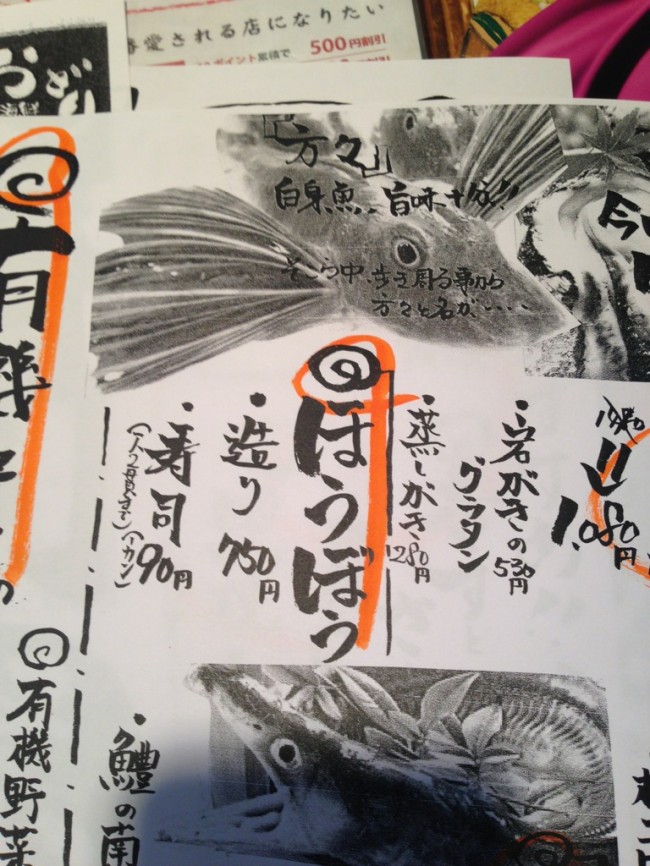 愛される店になりたい
ポイント累積で 500円割引
おどり
海鮮
「方々」
白身魚‥旨味十分!!
そこら中、歩き周る事から
方々と名が‥‥
ほうぼう
・造り 750円
・寿司 90円
(一人2貫まで) (一カン)
・岩がきの
グラタン 530円
・蒸しがき 280円
1.080円
有機野菜
・鱧の南